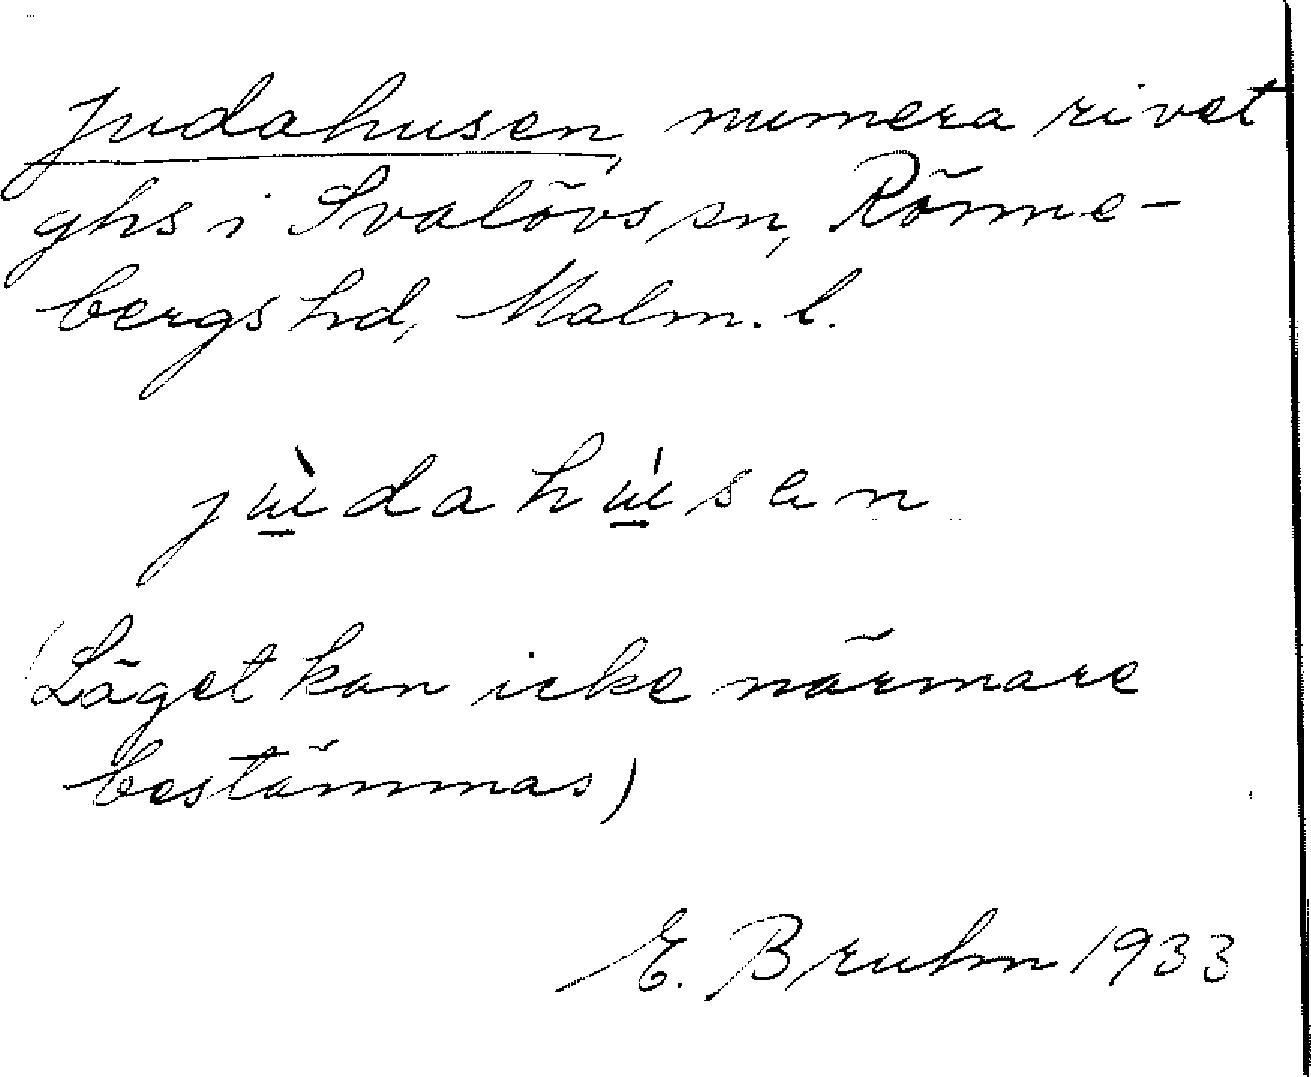 Judahusen, numera rivet
ghs i Svalövs sn, Rönne-
bergs hd, Malm. l.
jùdahúsen
(Läget kan icke närmare
bestämmas)
E. Bruhn 1933